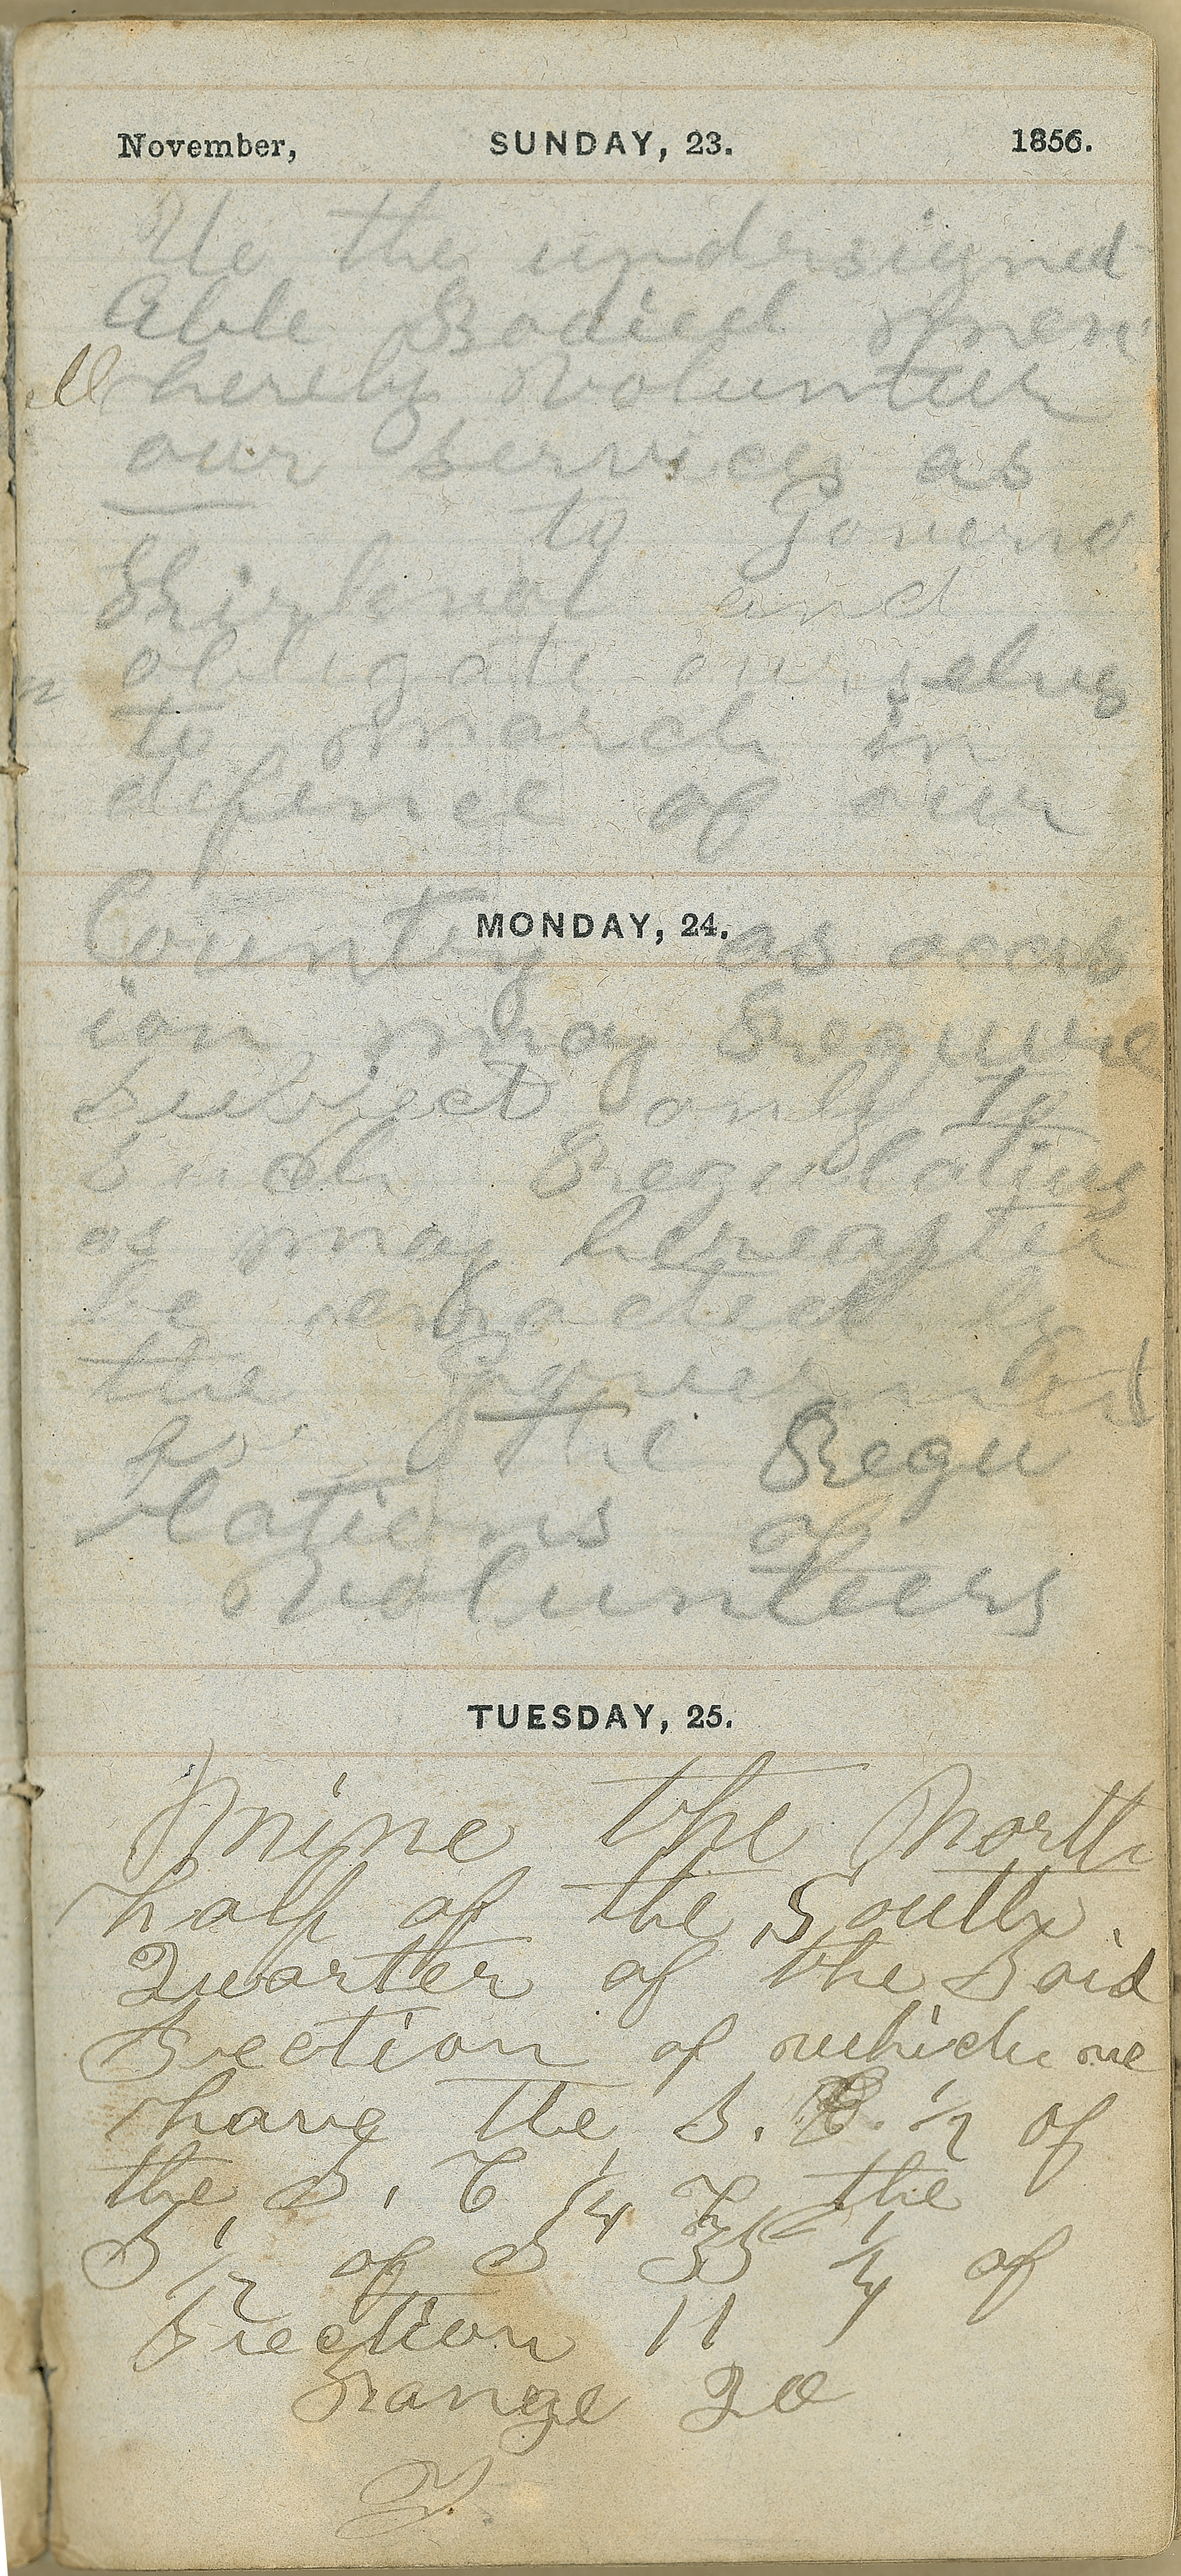 November, SUNDAY, 23. 1856.
We the undersigned
Able Bodied men
hereby volunteer
our services as
to Governo
and
obligate ourselves
to march in
difence of our
MONDAY, 24.
County as occas
ion may Require
subject only to
such Regulations
as may hereafter
be enacted by
the
the Regu
lations of
volunteers
TUESDAY, 25.
Mine the North
half of the South
Quarter of the Said
Section of which we
have the S. 1/2 of
the S. E 1/4 the
S 1/2 of S 35 1/4 of
Section 11
Range 20